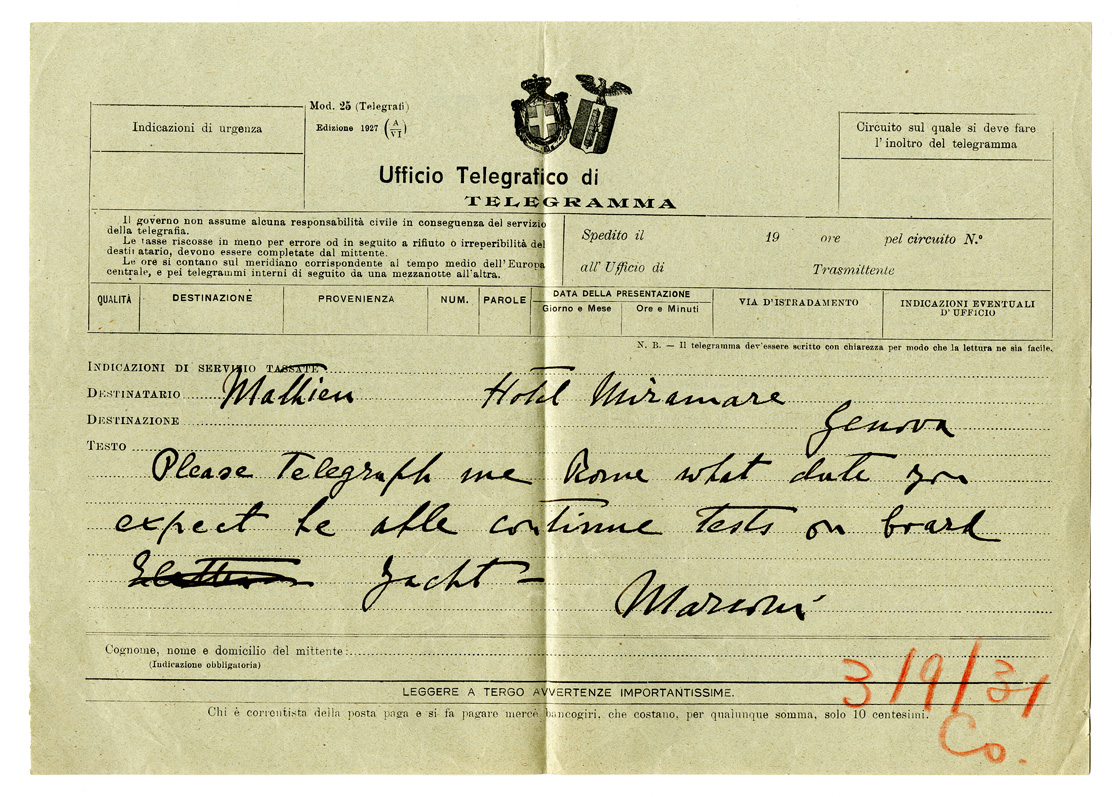 Indicazioni di urgenza
Mod. 25 (Telegrafi)
Edizione 1927 (A/VI)
Circuito sul quale si deve fare
l'inoltro del telegramma
Ufficio Telegrafico di
TELEGRAMMA
Il governo non assume alcuna responsabilità civile in conseguenza del servizio
della telegrafia.
Le tasse riscosse in meno per errore od in seguito a rifiuto o irreperibilità del
destinatario, devono essere completate dal mittente.
Le ore si contano sul meridiano corrispondente al tempo medio dell'Europa
centrale, e pei telegrammi interni di seguito da una mezzanotte all'altra.
Spedito il 19 ore pel circuito N.º
all'Ufficio di Trasmittente
QUALITÀ DESTINAZIONE PROVENIENZA NUM. PAROLE DATA DELLA PRESENTAZIONE VIA D'ISTRADAMENTO INDICAZIONI EVENTUALI
D'UFFICIO
Giorno e Mese Ore e Minuti
N. B. — Il telegramma dev'essere scritto con chiarezza per modo che la lettura ne sia facile.
INDICAZIONI DI SERVIZIO TASSATE
DESTINATARIO Mathieu Hotel Miramare
DESTINAZIONE Genova
TESTO
Please telegraph me Rome what date you
expect be able continue tests on board
Elettra Yacht —
Marconi
Cognome, nome e domicilio del mittente:
(Indicazione obbligatoria)
LEGGERE A TERGO AVVERTENZE IMPORTANTISSIME.
Chi è correntista della posta paga e si fa pagare mercè bancogiri, che costano, per qualunque somma, solo 10 centesimi.
3/9/31
Co.